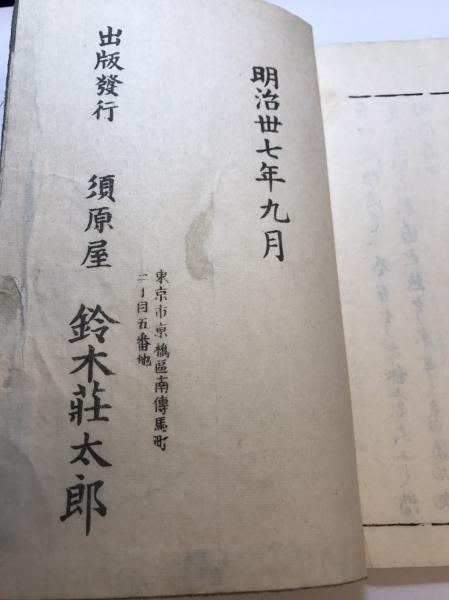 明治丗七年九月
東京市京橋區南傳馬町
二丁目五番地
出版發行　須原屋　鈴木莊太郎